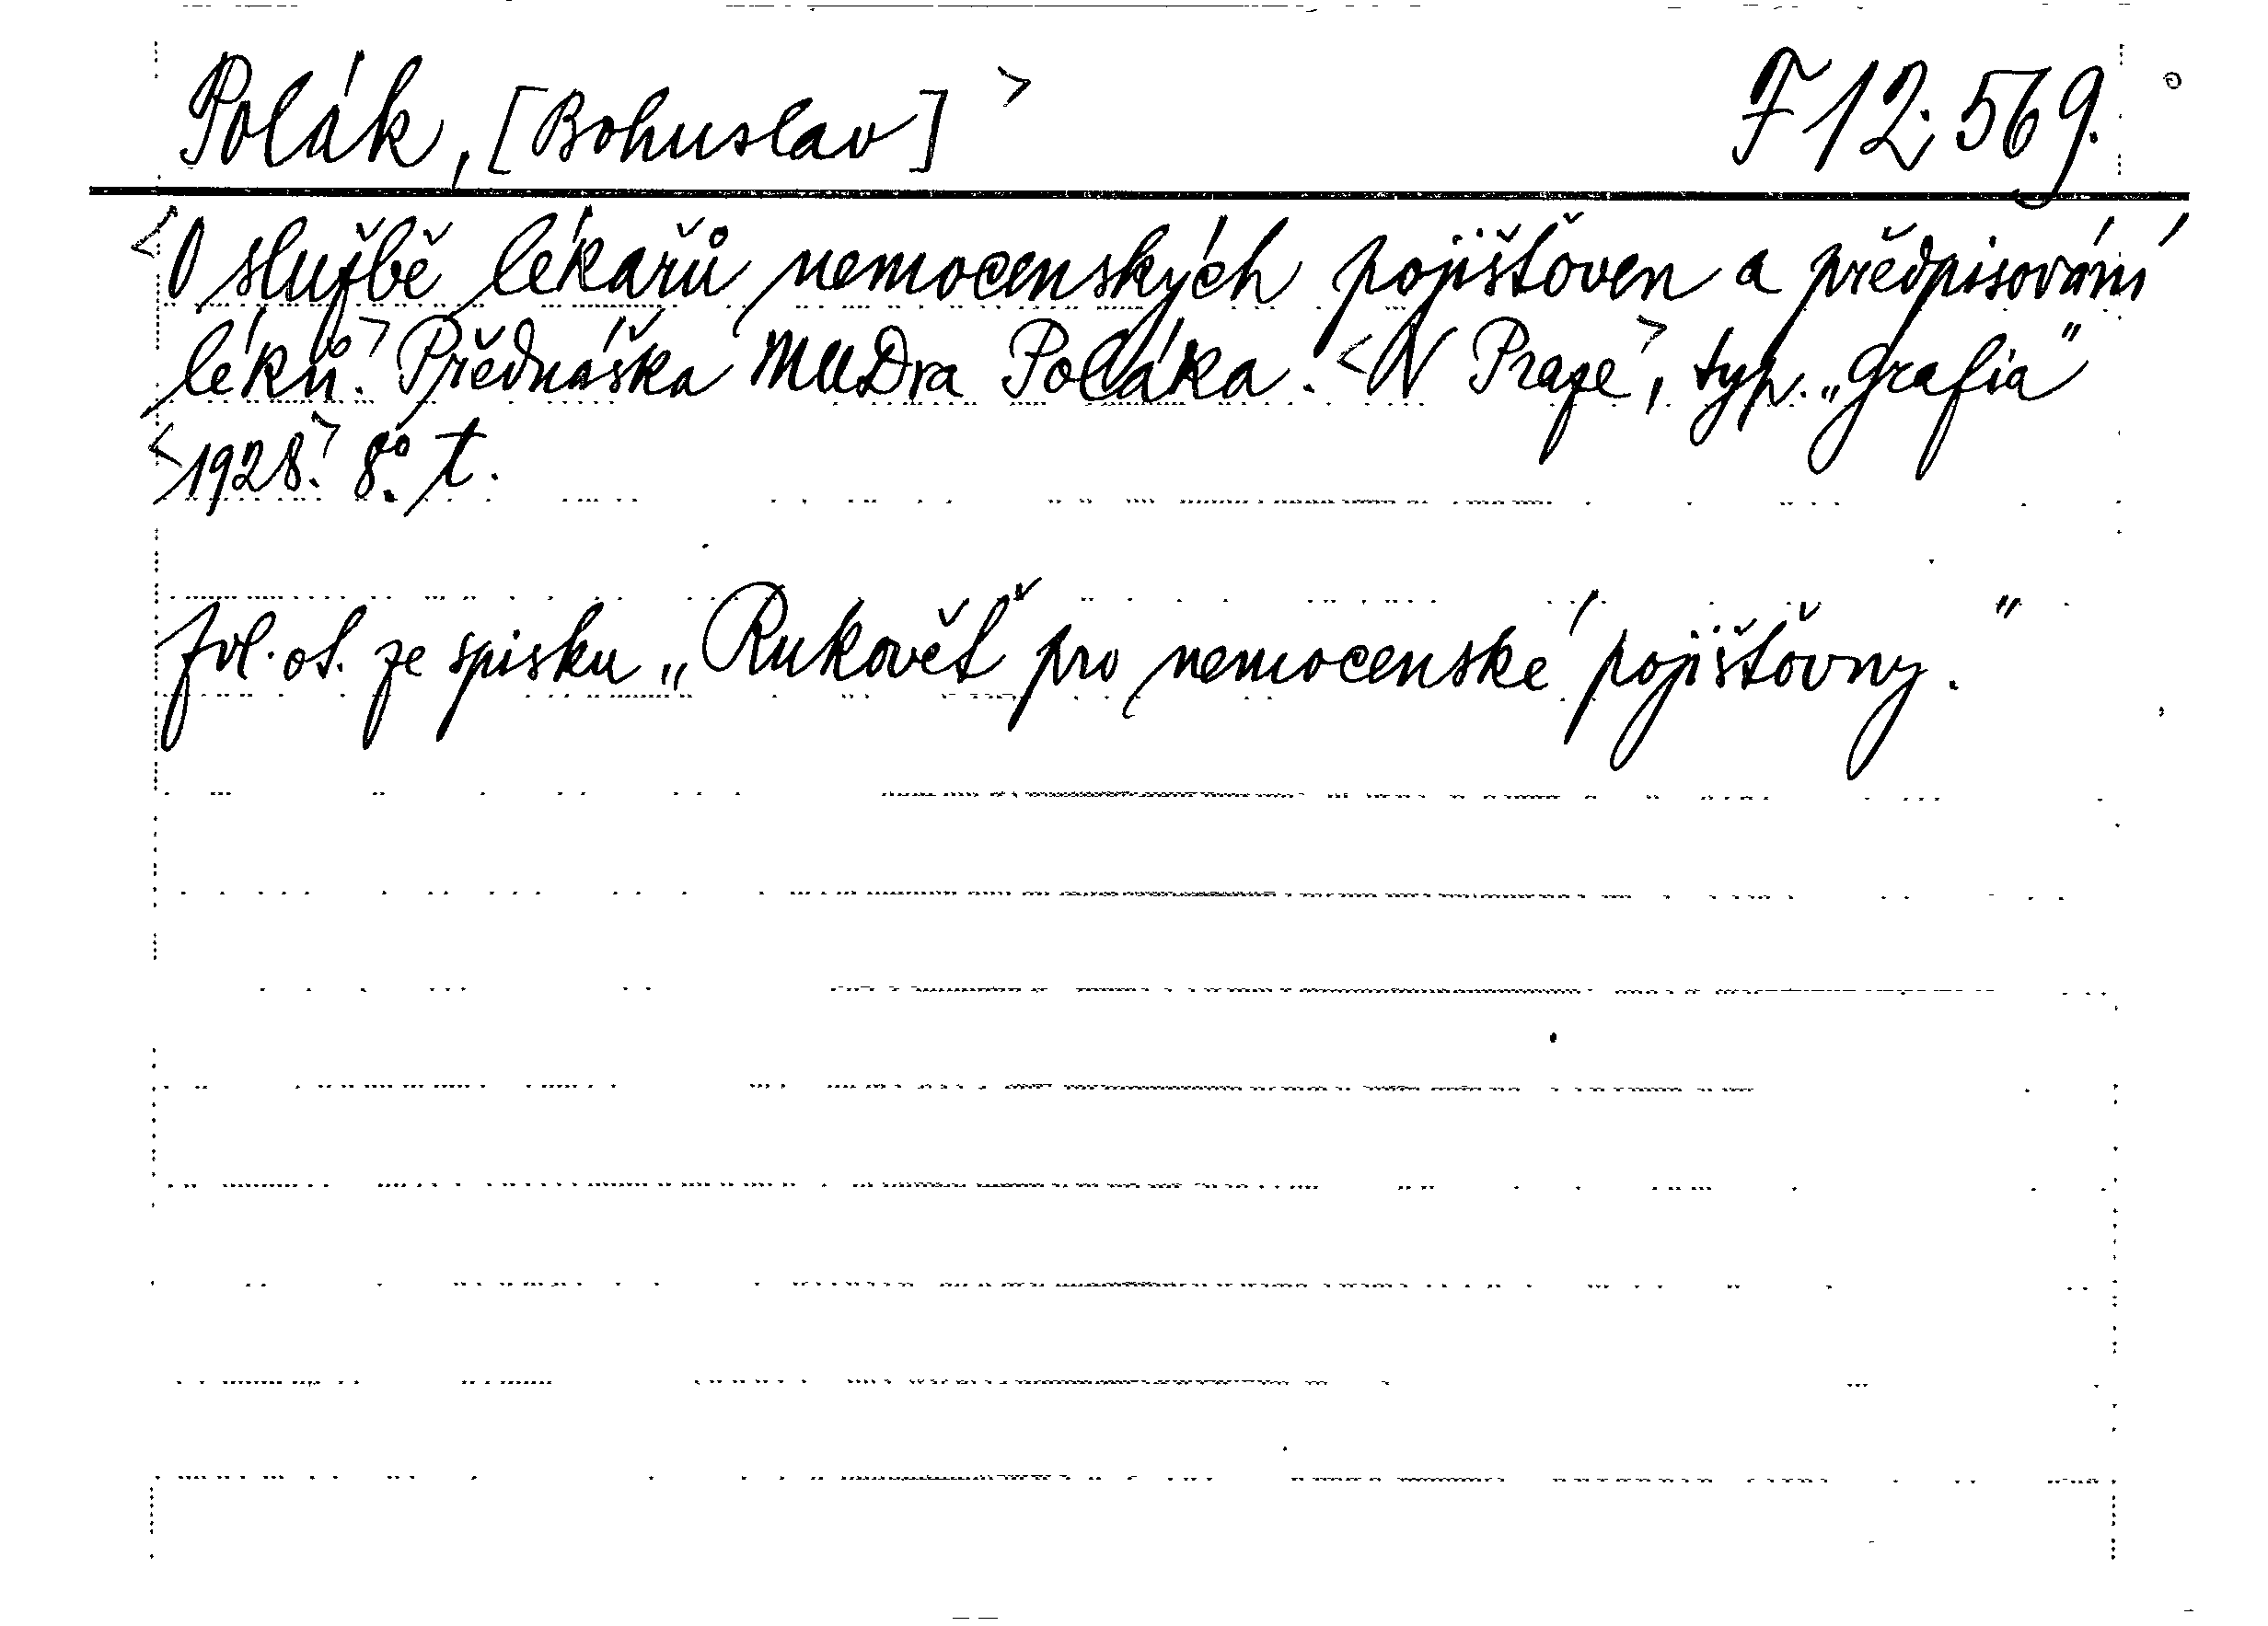 Polák, [Bohuslav] > F 12.569.
<O službě lékařů nemocenských pojišťoven a předpisování
léků.> Přednáška MUDra Poláka. <V Praze>, typ. „Grafia"
<1928.> 8° t.
Zvl. ot. ze spisku „Rukověť pro nemocenské pojišťovny."